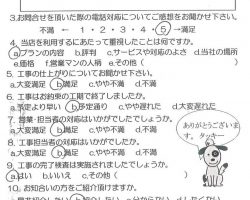 3.お問合せを頂いた際の電話対応についてご感想をお聞かせ下さい。
不満 ← 1・2・3・4・5 →満足
4. 当店を利用するにあたって重視したことは何ですか。
aプランの内容 b評判 cサービスや対応のよさ d当社の場所
e価格 f営業マンの人柄 eその他(
5. 工事の仕上がりについてお聞かせ下さい。
a大変満足 b満足 cやや不満 d不満
6. 工事はお約束の工期で終了しましたか。
a予定より早い b予定通り cやや遅れた d大変遅れた
7. 営業・担当者の対応はいかがでしたでしょうか。
a大変満足 b満足
8. 工事担当者の対応はいかがでしたか。
a大変満足 b満足
9. 工事の完了検査は実施されましたでしょうか。
aはい bいいえ cその他(
10. お知合いの方をご紹介頂けますか。
ありがとうございま
す。タッキー